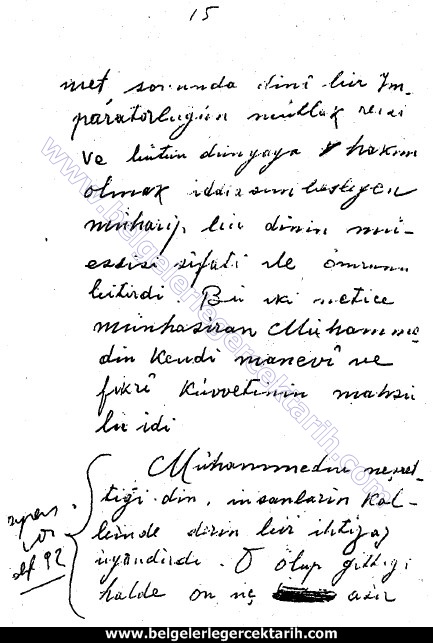 15
met sonunda dinî bir Im-
paratorluğun mutlak reisi
ve bütün dünyaya hakim
olmak iddiasını besliyen
muharip bir dinin mü-
essisi sıfatı ile ömrünü
bitirdi. Bu iki netice
münhasıran Muhamme
din kendi manevî ve
fikrî kuvvetinin mahsu
lu idi
Muhammedin neşret-
tiği din, insanların kal-
binde derin bir ihtizaz
uyandırdı. O ölüp gittiği
halde on üç asır
92
www.belgelerlegercektarih.com
www.belgelerlegercektarih.com